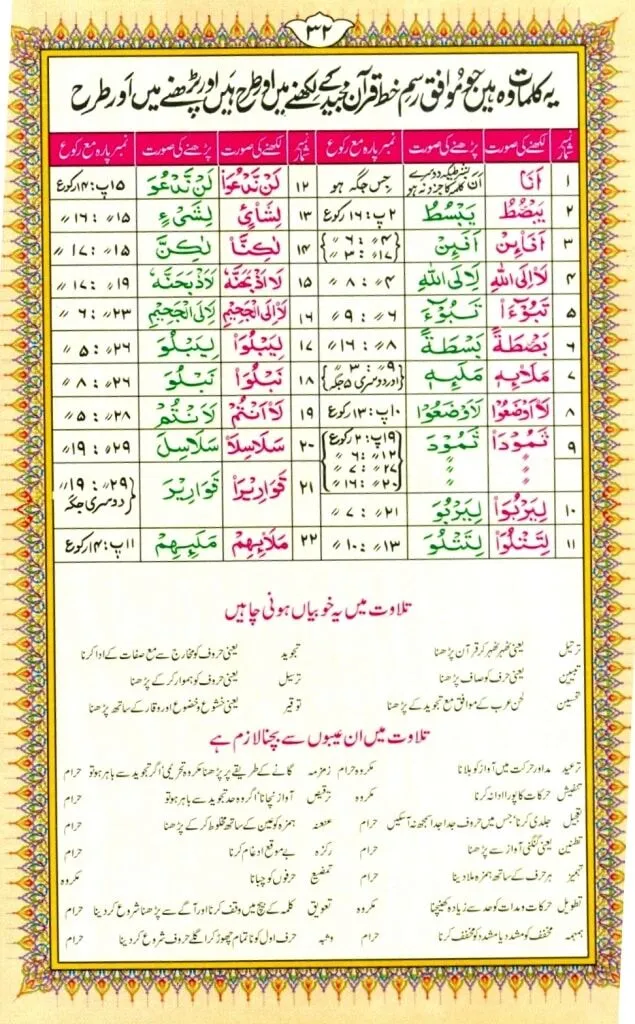 ۳۲
یہ کلمات وہ ہیں جو موافق رسم خط قرآن مجید کے لکھنے میں اور طرح ہیں اور پڑھنے میں اور طرح
نمبر شمار لکھنے کی صورت پڑھنے کی صورت نمبر پارہ مع رکوع نمبر شمار لکھنے کی صورت پڑھنے کی صورت نمبر پارہ مع رکوع
۱ اَنَا جس جگہ ہو ۱۲ لَنْ تَدْعُوَا۟ لَنْ تَدْعُوَ ۱۵پ: ۱۴رکوع
۲ يَبْصُطُ يَبْسُطُ ۲پ: ۱۶رکوع ۱۳ لِشَاىْءٍ لِشَىْءٍ ۱۵〃 : ۱۶〃
۳ اَفَا۟ئِنْ اَفَئِنْ ۴〃 : ۶〃 ۱۷〃 : ۳〃 ۱۴ لٰكِنَّا۟ لٰكِنَّ ۱۵〃 : ۱۷〃
۴ لَا۟اِلَى اللهِ لَاِلَى اللهِ ۴〃 : ۸〃 ۱۵ لَا۟اَذْبَحَنَّهٗ لَاَذْبَحَنَّهٗ ۱۹〃 : ۱۷〃
۵ تَبُوْٓءَا۟ تَبُوْٓءَ ۶〃 : ۹〃 ۱۶ لَا۟اِلَى الْجَحِيْمِ لَاِلَى الْجَحِيْمِ ۲۳〃 : ۶〃
۶ بَصْۜطَةً بَسْطَةً ۸〃 : ۱۶〃 ۱۷ لِيَبْلُوَا۟ لِيَبْلُوَ ۲۶〃 : ۵〃
۷ مَلَا۟ئِهٖ مَلَئِهٖ ۹〃 : ۳〃 اور دوسری ۵ جگہ ۱۸ نَبْلُوَا۟ نَبْلُوَ ۲۶〃 : ۸〃
۸ لَا۟اَوْضَعُوْا لَاَوْضَعُوْا ۱۰پ: ۱۳رکوع ۱۹ لَا۟اَنْتُمْ لَاَنْتُمْ ۲۸〃 : ۵〃
۹ ثَمُوْدَا۟ ثَمُوْدَ ۱۹پ: ۲رکوع ۲۰ سَلَاسِلَا۟ سَلَاسِلَ ۲۹〃 : ۱۹〃
〃 〃 ۱۲〃 : ۶〃
〃 〃 ۲۷〃 : ۷〃 ۲۱ قَوَارِيْرَا۟ قَوَارِيْرَ ۲۹〃 : ۱۹〃 دوسری جگہ
〃 〃 ۲۰〃 : ۱۶〃
۱۰ لِيَرْبُوَا۟ لِيَرْبُوَ ۲۱〃 : ۷〃
۱۱ لِتَتْلُوَا۟ لِتَتْلُوَ ۱۳〃 : ۱۰〃 ۲۲ مَلَا۟ئِهِمْ مَلَئِهِمْ ۱۱پ: ۱۴رکوع
تلاوت میں یہ خوبیاں ہونی چاہیں
ترتیل یعنی ٹھہر ٹھہر کر قرآن پڑھنا تجوید یعنی حروف کو مخارج سے مع صفات کے ادا کرنا
تبیین یعنی حرف کو صاف پڑھنا ترسیل یعنی حروف کو ہموار کر کے پڑھنا
تحسین لحن عرب کے موافق مع تجوید کے پڑھنا توقیر یعنی خشوع و خضوع اور وقار کے ساتھ پڑھنا
تلاوت میں ان عیبوں سے بچنا لازم ہے
ترعید مد اور حرکت میں آواز کو ہلانا مکروہ حرام زمزمہ گانے کے طریقے پر پڑھنا مکروہ تحریمی اگر تجوید سے باہر ہو تو حرام
تنفیش حرکات کا پورا ادا نہ کرنا مکروہ ترقیص آواز نچانا اگر وہ حد تجوید سے باہر ہو تو حرام
تعجیل جلدی کرنا جس میں حروف جدا جدا سمجھ نہ آسکیں حرام عنعنہ ہمزہ کو عین کے ساتھ مخلوط کر کے پڑھنا حرام
تطنین یعنی گنگنی آواز سے پڑھنا حرام رکزہ بے موقع ادغام کرنا حرام
تہمیز ہر حرف کے ساتھ ہمزہ ملا دینا حرام تمضیغ حرفوں کو چبانا مکروہ
تطویل حرکات و مدات کو حد سے زیادہ کھینچنا مکروہ تعویق کلمہ کے بیچ میں وقف کرنا اور آگے سے پڑھنا شروع کر دینا حرام
ہمہمہ مخفف کو مشدد یا مشدد کو مخفف کرنا حرام وثبہ حرف اول کو نا تمام چھوڑ کر اگلے حروف شروع کر دینا حرام